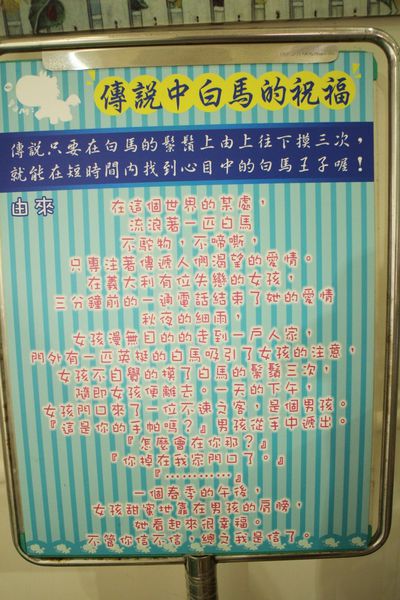 傳說中白馬的祝福
傳說只要在白馬的鬃鬚上由上往下摸三次，
就能在短時間內找到心目中的白馬王子喔！
由來
在這個世界的某處，
流浪著一匹白馬
不駝物，不啼嘶，
只專注著傳遞人們渴望的愛情。
在義大利有位失戀的女孩，
三分鐘前的一通電話結束了她的愛情
秋夜的細雨，
女孩漫無目的的走到一戶人家，
門外有一匹英挺的白馬吸引了女孩的注意，
女孩不自覺的摸了白馬的鬃鬚三次，
隨即女孩便離去。一天的下午，
女孩門口來了一位不速之客，是個男孩。
『這是你的手帕嗎？』男孩從手中遞出。
『怎麼會在你那？』
『你掉在我家門口了。』
『…………』
一個春季的午後，
女孩甜蜜地靠在男孩的肩膀，
她看起來很幸福。
不管你信不信，總之我是信了。